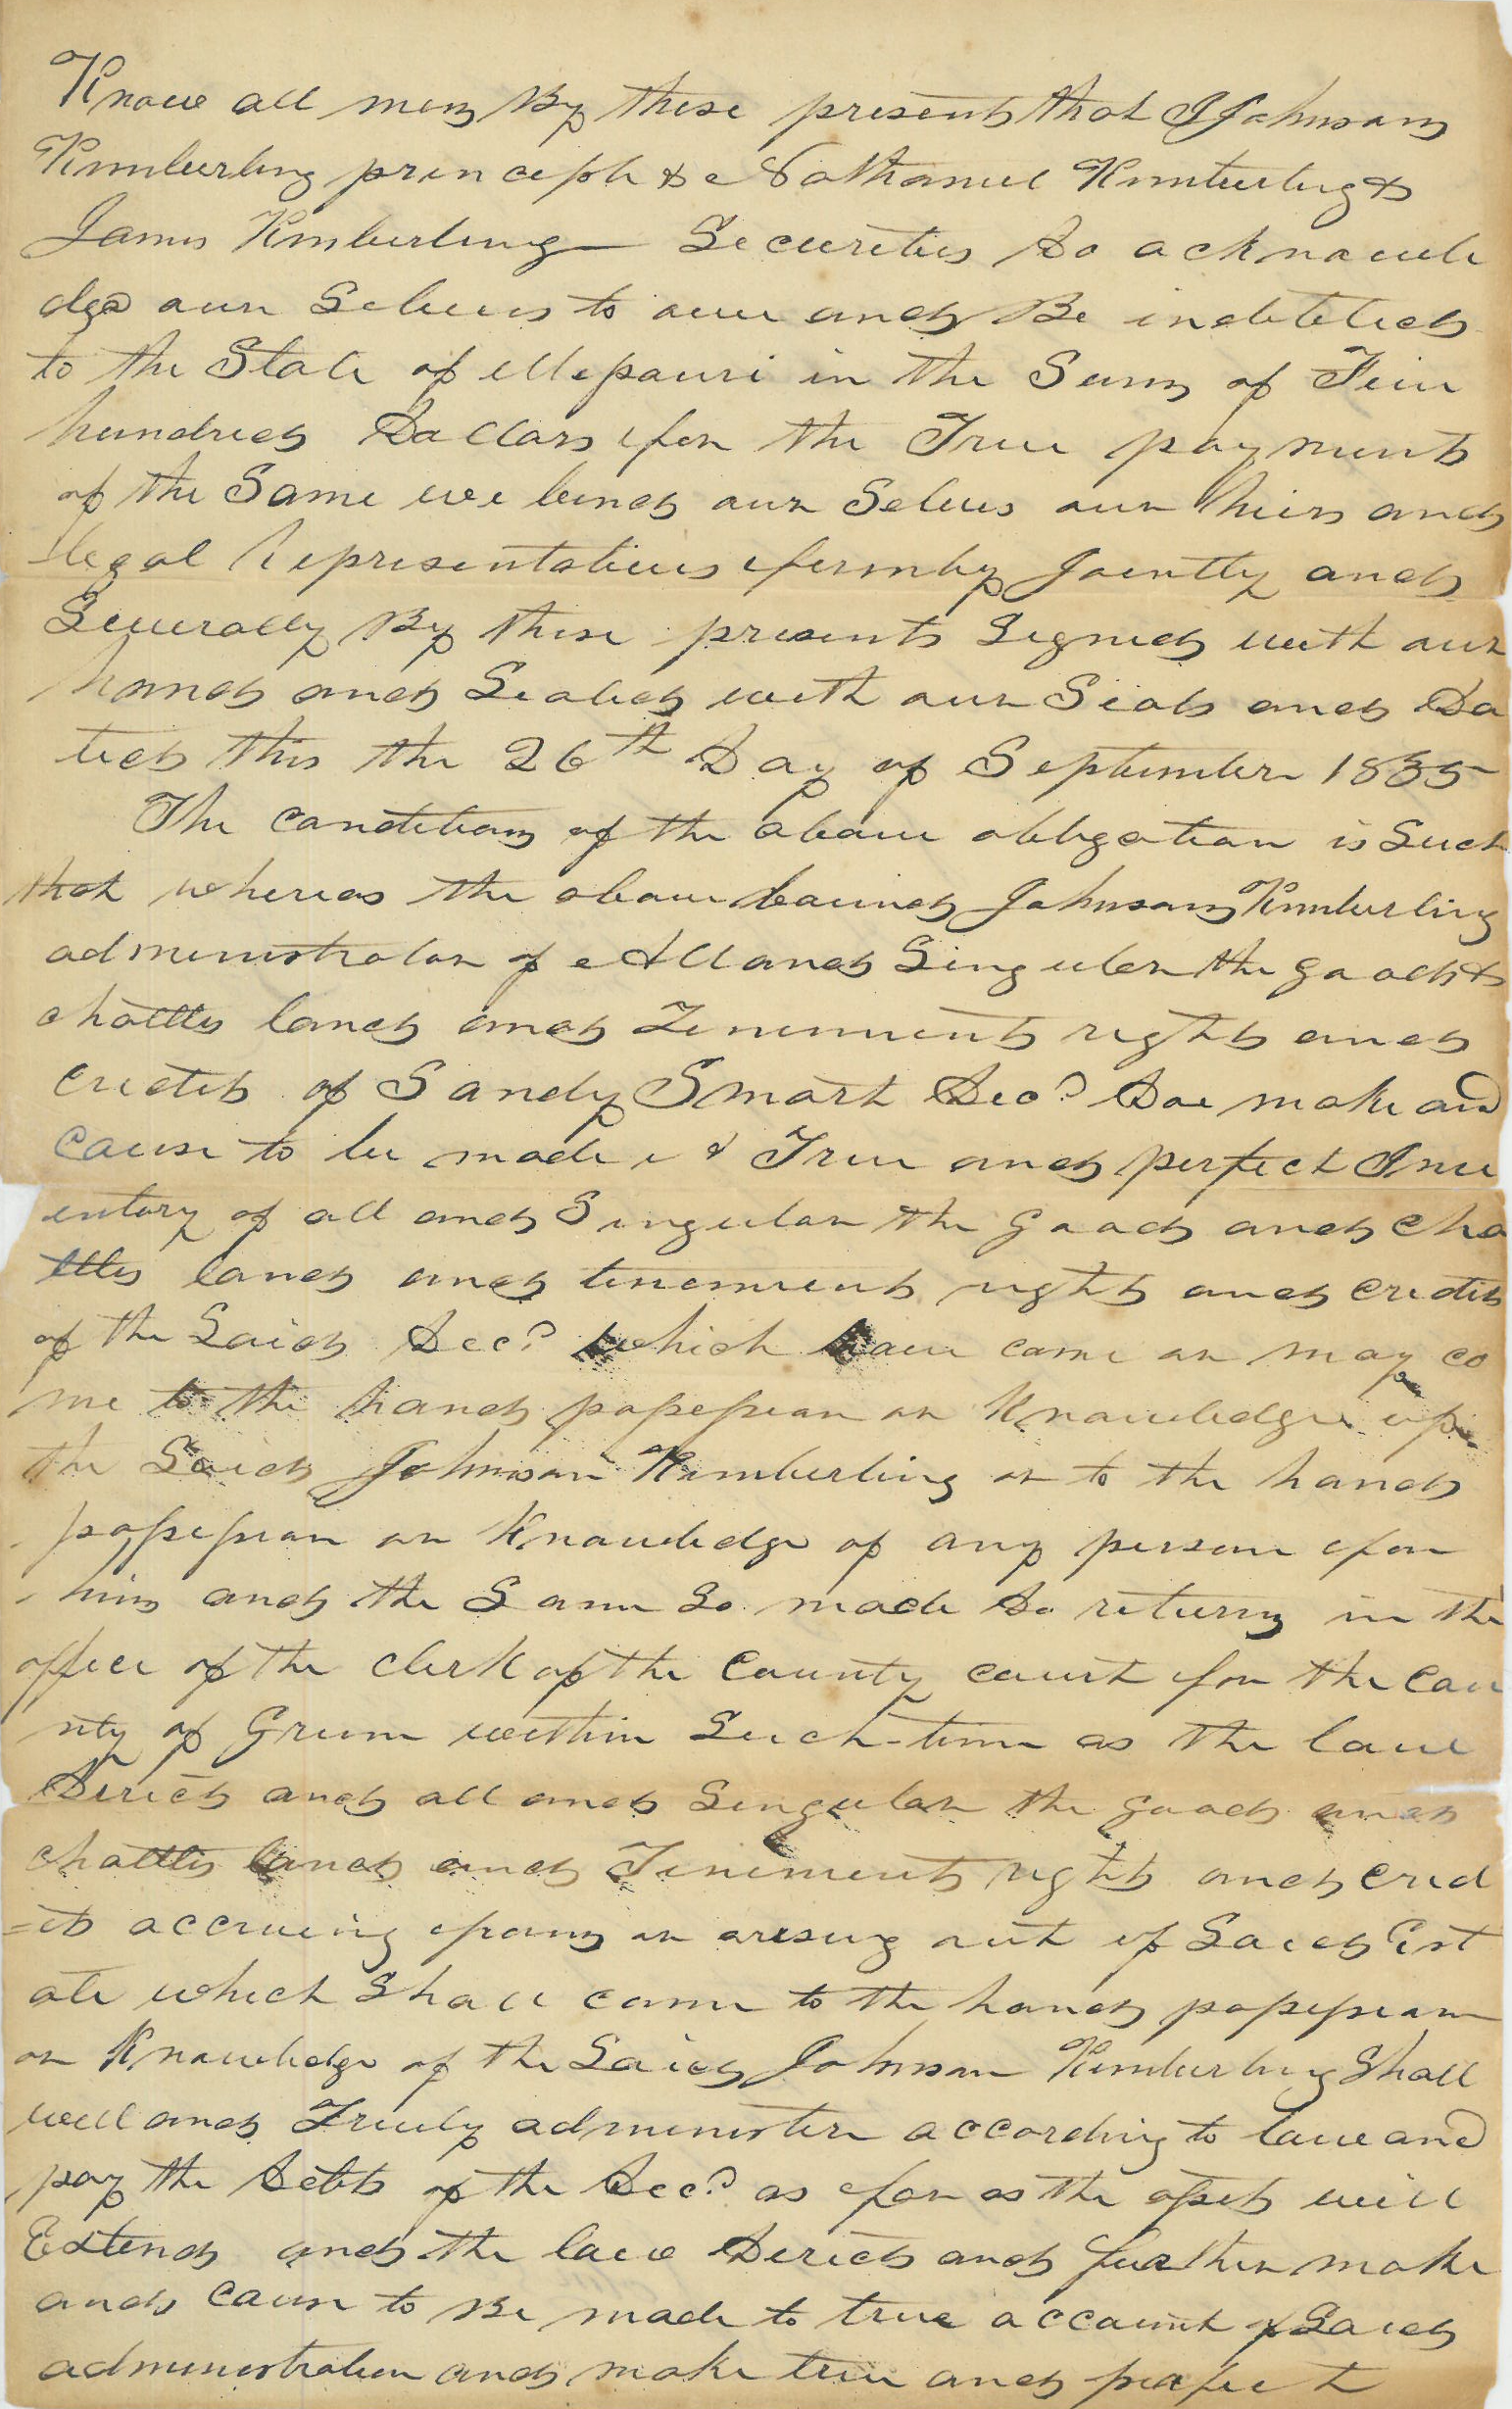 Know all men By these presents that I Johnson
Kimberling princeple & Nathaniel Kimberling &
James Kimberling Securities do acknowle
dge our Selves to owe and Be indebted
to the State of Missouri in the Sum of Five
hundred Dollars for the True payment
of the Same we bind our Selves our hiers and
legal representatives firmly Jointly and
Severally By these presents Signed with our
hands and Sealed with our Seals and Da
ted this the 26th Day of September 1835
The condition of the above obligation is Such
that whereas the above bound Johnson Kimberling
administrator of All and Singular the goods &
chattles lands and Tenements rights and
credits of Sandy Smart Decd Doe make and
cause to be made a True and perfect Inv
entory of all and Singular the goods and cha
ttles lands and tenements rights and credits
of the Said Decd which have come or may co
me to the hands possession or Knowledge of
the Said Johnson Kimberling or to the hands
possession or Knowledge of any person for
him and the Same So made do return in the
office of the clerk of the county court for the cou
nty of Green within Such time as the law
Direcs and all and Singular the goods and
chattles lands and Tenements rights and cred
=its accruing from or arising out of Said Est
ate which Shall come to the hands possession
or Knowledge of the Said Johnson Kimberling Shall
well and Truely administer according to law and
pay the debts of the Decd as far as the assets will
Extend and the law Direcs and further make
and cause to Be made to true account of Said
administration and make true and prefect